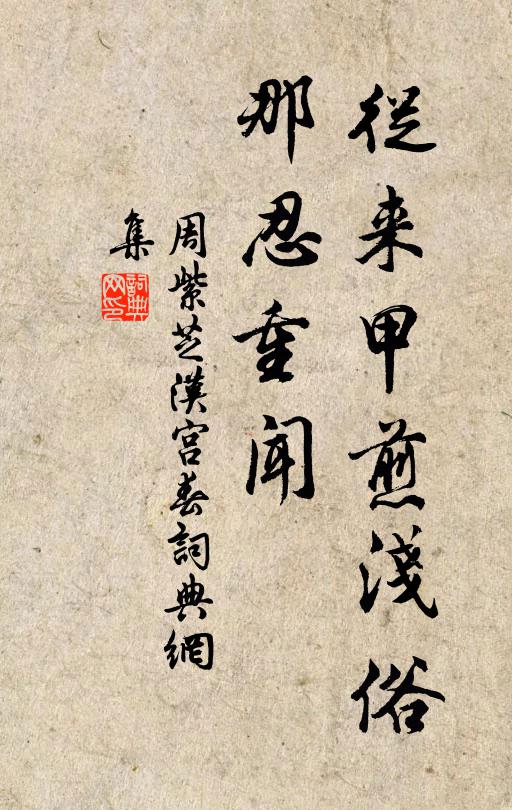 從来甲煎淺俗
那忍重聞
周紫芝漢宮春詞典網
集
詞典
网印